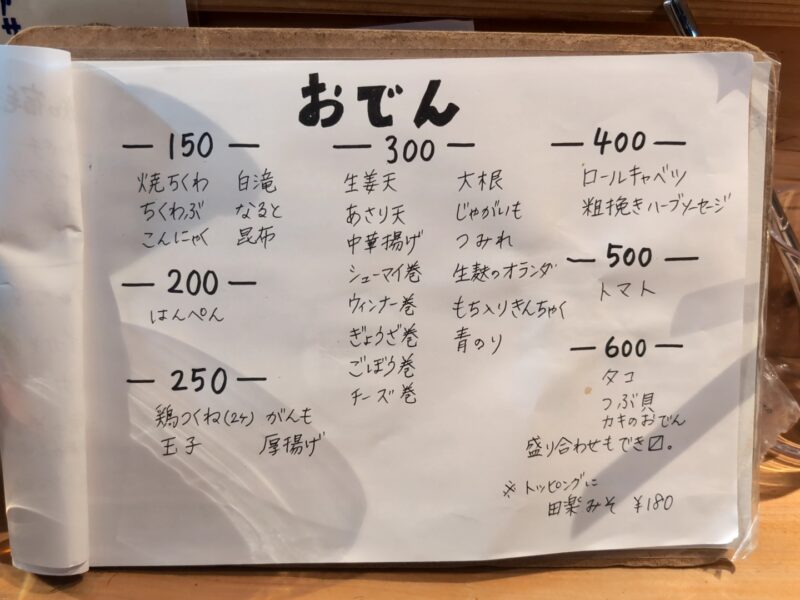 おでん
— 150 —
焼ちくわ 白滝
ちくわぶ なると
こんにゃく 昆布
— 200 —
はんぺん
— 250 —
鶏つくね(2ケ) がんも
玉子 厚揚げ
— 300 —
生姜天 大根
あさり天 じゃがいも
中華揚げ つみれ
シューマイ巻 生麩のオランダ
ウィンナー巻 もち入りきんちゃく
ぎょうざ巻 青のり
ごぼう巻
チーズ巻
— 400 —
ロールキャベツ
粗挽きハーブソーセージ
— 500 —
トマト
— 600 —
タコ
つぶ貝
カキのおでん
盛り合わせもでき〼。
※トッピングに
田楽みそ ¥180